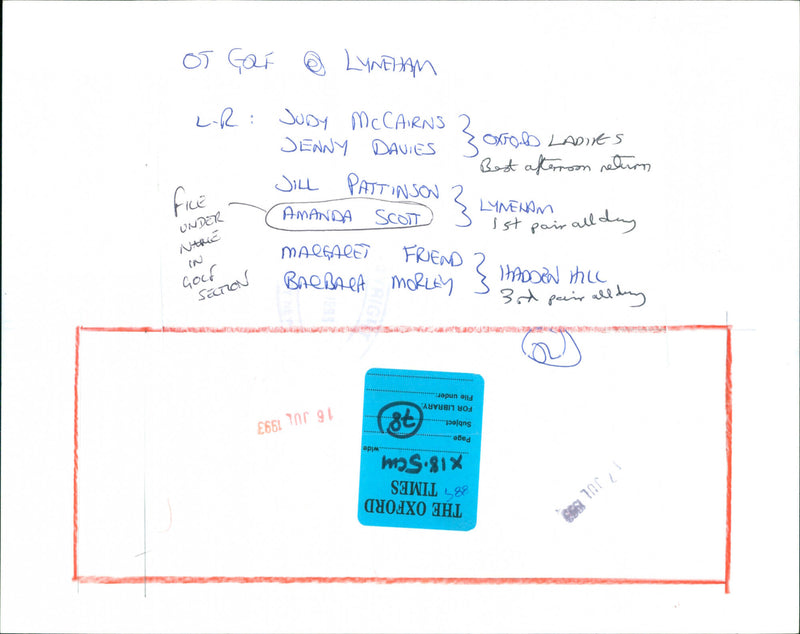 OT GOLF @ LYNEHAM
L-R : JUDY McCAIRNS
JENNY DAVIES
OXFORD LADIES
Best afternoon return
JILL PATTINSON
AMANDA SCOTT
LYNEHAM
1st pair all day
MARGARET FRIEND
BARBARA MORLEY
HADDON HILL
3rd pair all day
FILE
UNDER
NAME
IN
GOLF
SECTION
16 JUL 1993
17 JUL 1993
THE OXFORD
TIMES
X18.5cm
wide
Page
Subject
78
FOR LIBRARY.
File under: